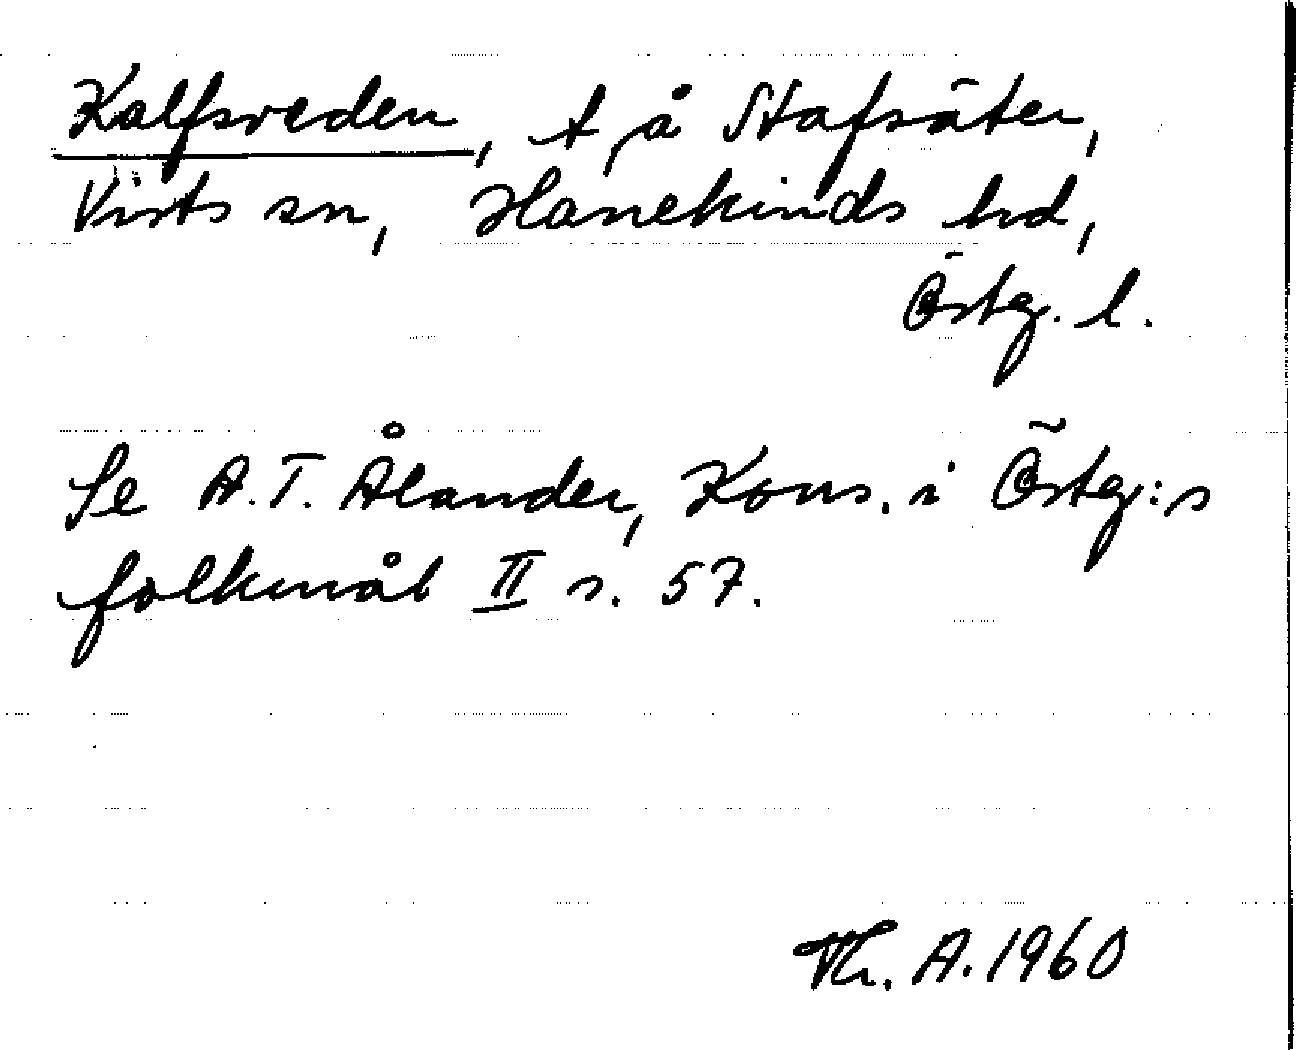 Kalfsveden, t, å Stafsäter,
Vists sn, Hanekinds hd,
Östg. l.
Se A.T. Ålander, Kons. i Östg:s
folkmål II s. 57.
Th. A. 1960